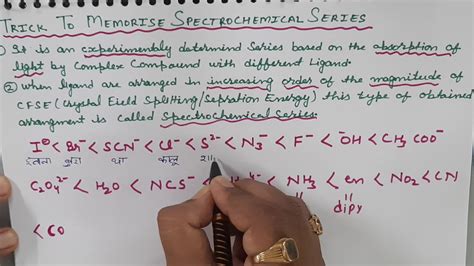 TRICK TO MEMORISE SPECTROCHEMICAL SERIES
It is an experimentally determind Series based on the absorption of
light by Complex Compound with different Ligand.
② When ligand are arranged in increasing order of the magnitude of
CFSE (Crystal Field Splitting/Sepration Energy) this type of obtained
arrangment is called Spectrochemical Series.
I⊖ < Br⁻ < SCN⁻ < Cl⁻ < S²⁻ < N₃⁻ < F⁻ < ŌH < CH₃COO⁻
था कालू
C₂O₄²⁻ < H₂O < NCS⁻ < 4⁻ < NH₃ < en < NO₂ < CN
॥ ॥
dipy
< CO